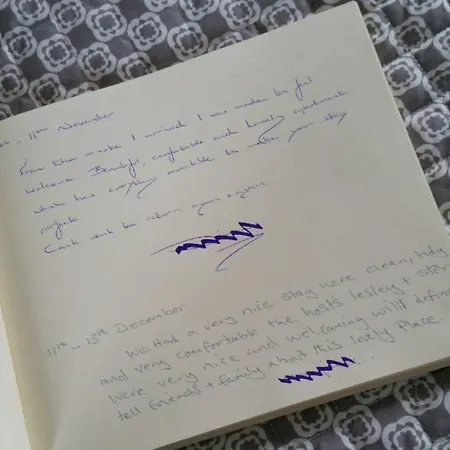 - 11th November
From the minute I arrived I was made to feel
welcome. Beautiful, comfortable and homely apartment
which has everything available to make your stay
perfect.
Can't wait to return again & again.
11th - 13th December
We Had a very nice stay here clean, tidy
and very comfortable the hosts lesley +
were very nice and welcoming will
tell friends + family about this lovely Place.